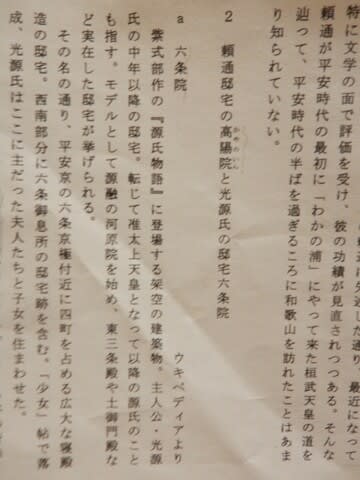 した通り、最近になって
特に文学の面で評価を受け、彼の功績が見直されつつある。そんな
頼通が平安時代の最初に「わかの浦」にやって来た桓武天皇の道を
辿って、平安時代の半ばを過ぎるころに和歌山を訪れたことはあま
り知られていない。
2 頼通邸宅の高陽院と光源氏の邸宅六条院
かやのいん
a 六条院
ウキペディアより
紫式部作の『源氏物語』に登場する架空の建築物。主人公・光源
氏の中年以降の邸宅。転じて准太上天皇となって以降の源氏のこと
も指す。モデルとして源融の河原院を始め、東三条殿や土御門殿な
ど実在した邸宅が挙げられる。
その名の通り、平安京の六条京極付近に四町を占める広大な寝殿
造の邸宅。西南部分に六条御息所の邸宅跡を含む。「少女」帖で落
成、光源氏はここに主だった夫人たちと子女を住まわせた。